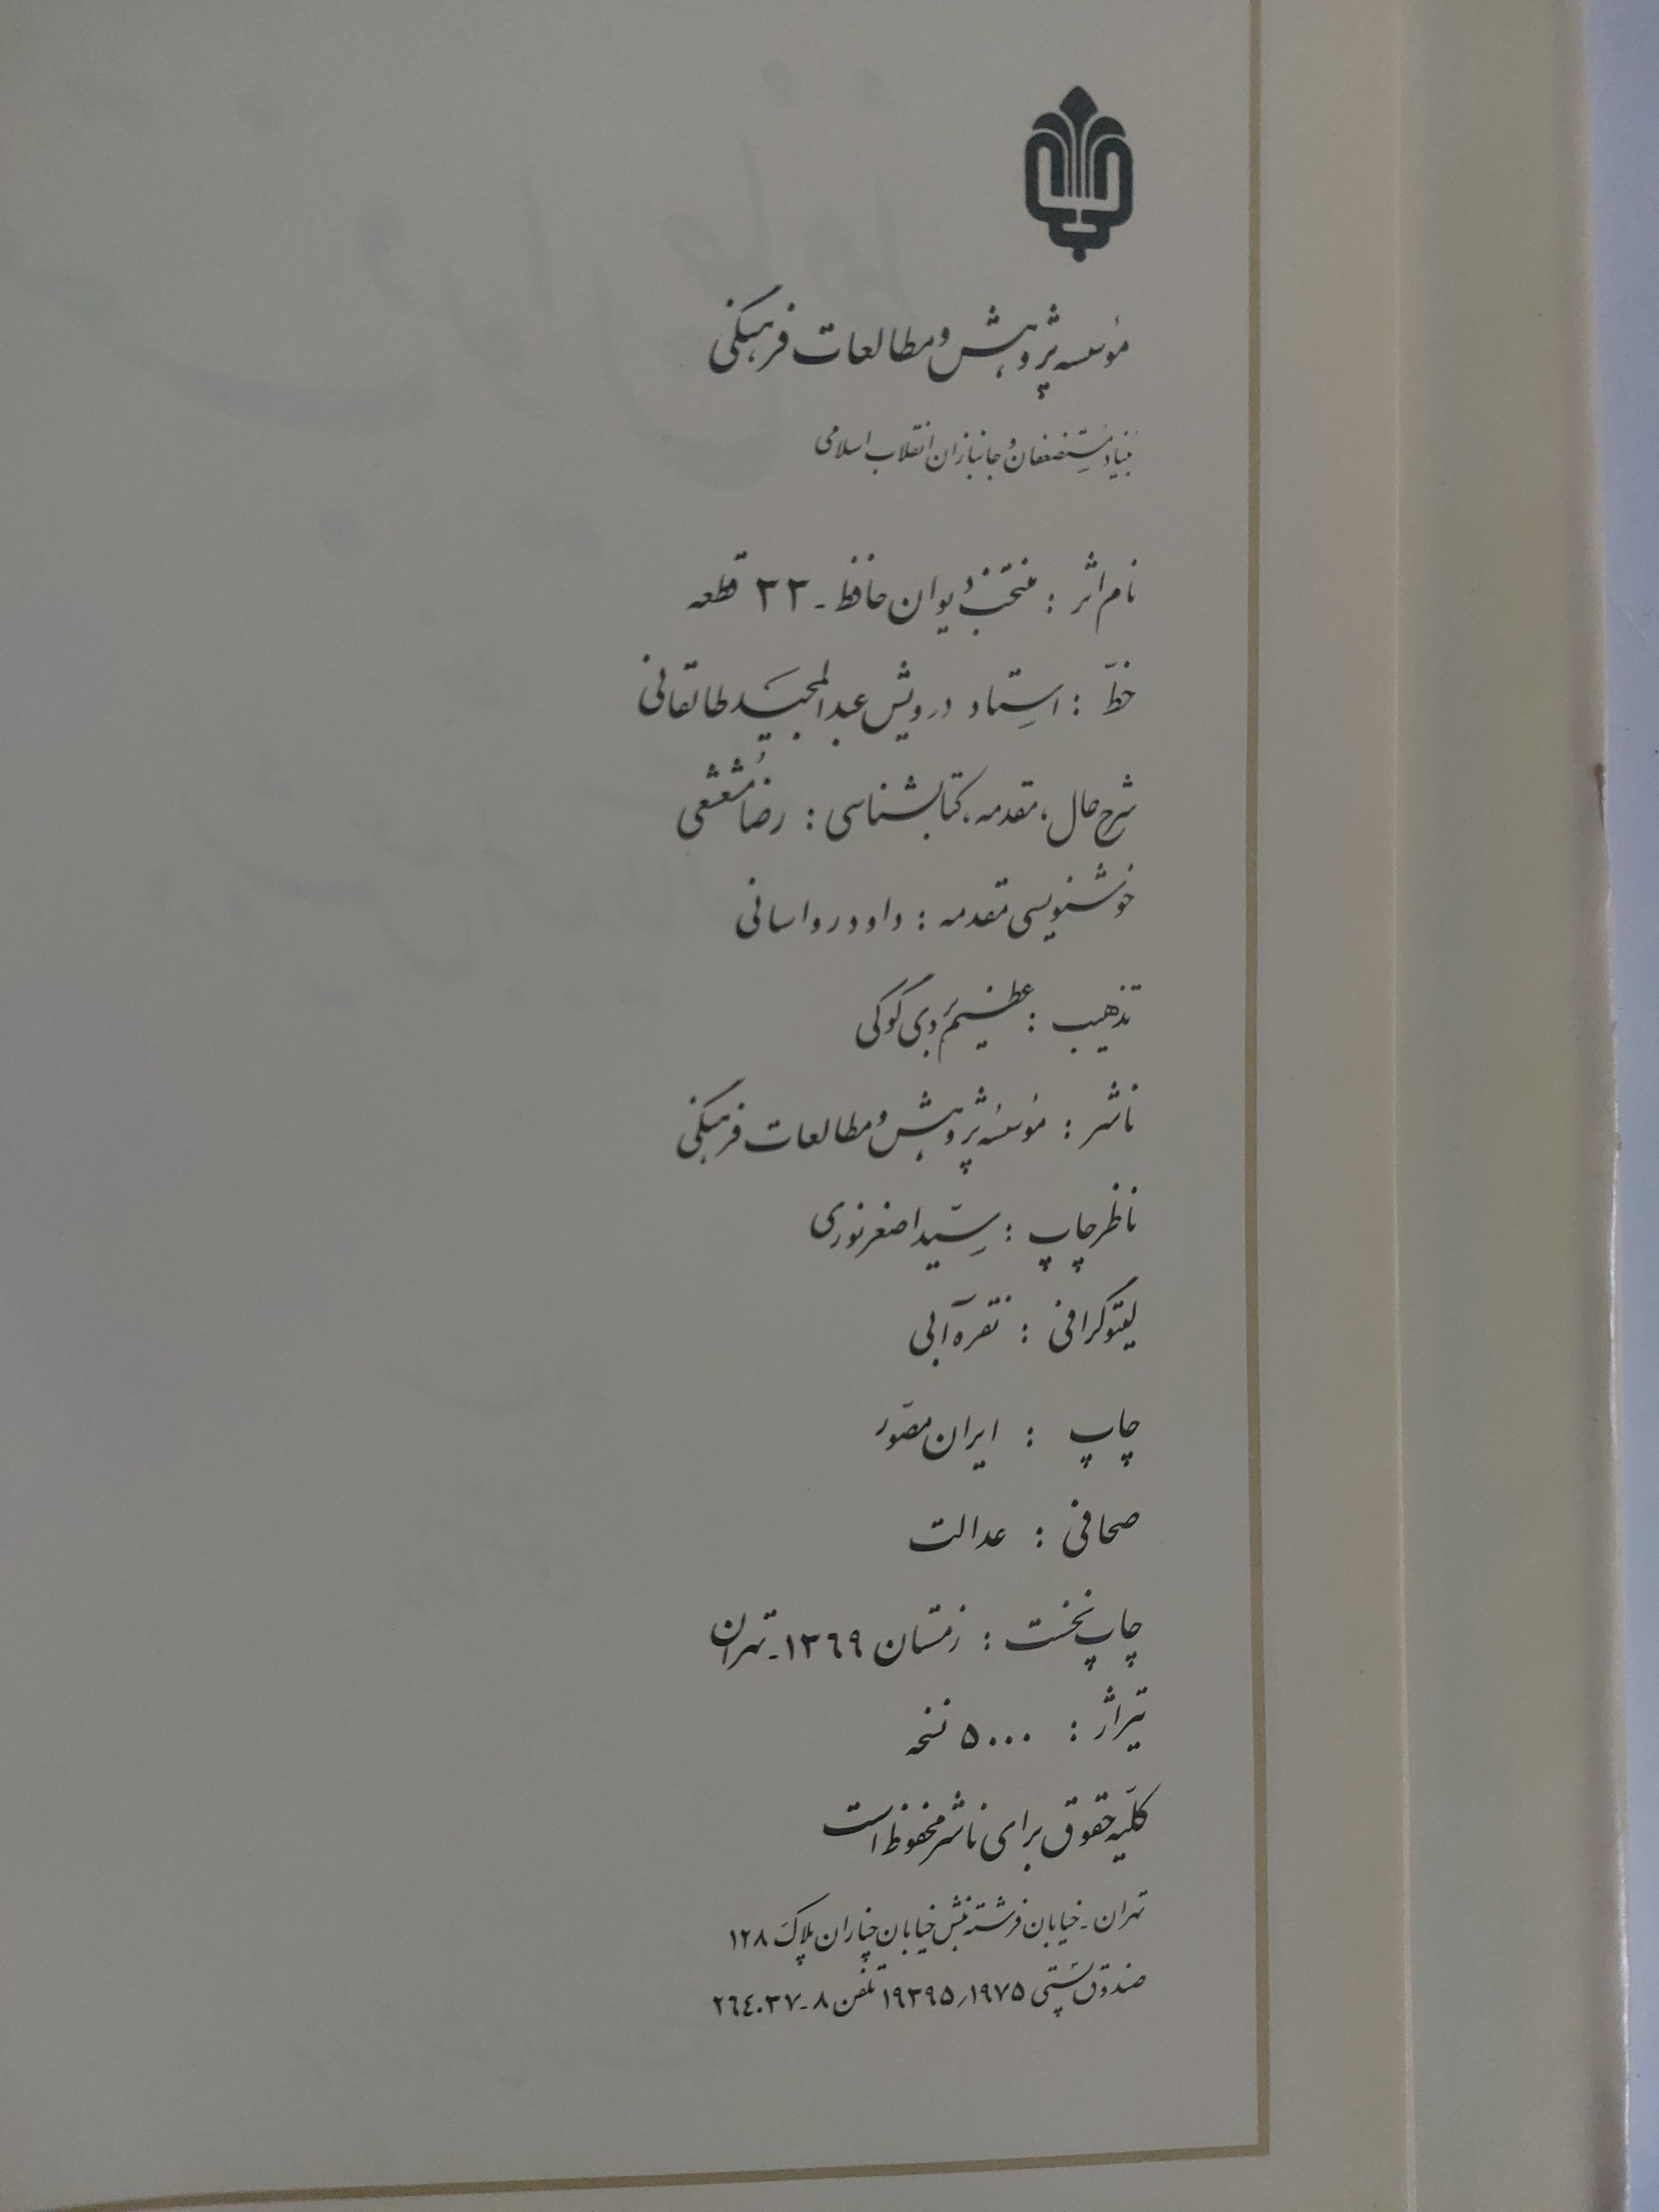 مؤسسه پژوهش و مطالعات فرهنگی
بنیاد مستضعفان و جانبازان انقلاب اسلامی
نام اثر : منتخب دیوان حافظ ـ ٣٣ قطعه
خطّ : استاد درویش عبدالمجید طالقانی
شرح حال، مقدمه، کتابشناسی : رضا مُشعشعی
خوشنویسی مقدمه : داود رواسانی
تذهیب : عظیم بَردی کوکی
ناشر : مؤسسه پژوهش و مطالعات فرهنگی
ناظر چاپ : سیّد اصغر نوری
لیتوگرافی : نقره آبی
چاپ : ایران مصوّر
صحافی : عدالت
چاپ نخست : زمستان ١٣٦٩ ـ تهران
تیراژ : ۵۰۰۰ نسخه
کلّیه حقوق برای ناشر محفوظ است
تهران ـ خیابان فرشته نبش خیابان چناران پلاک ١٢٨
صندوق پستی ١٩٧۵/١٩٣٩۵ تلفن ٨ ـ ٢٦٤٠٣٧